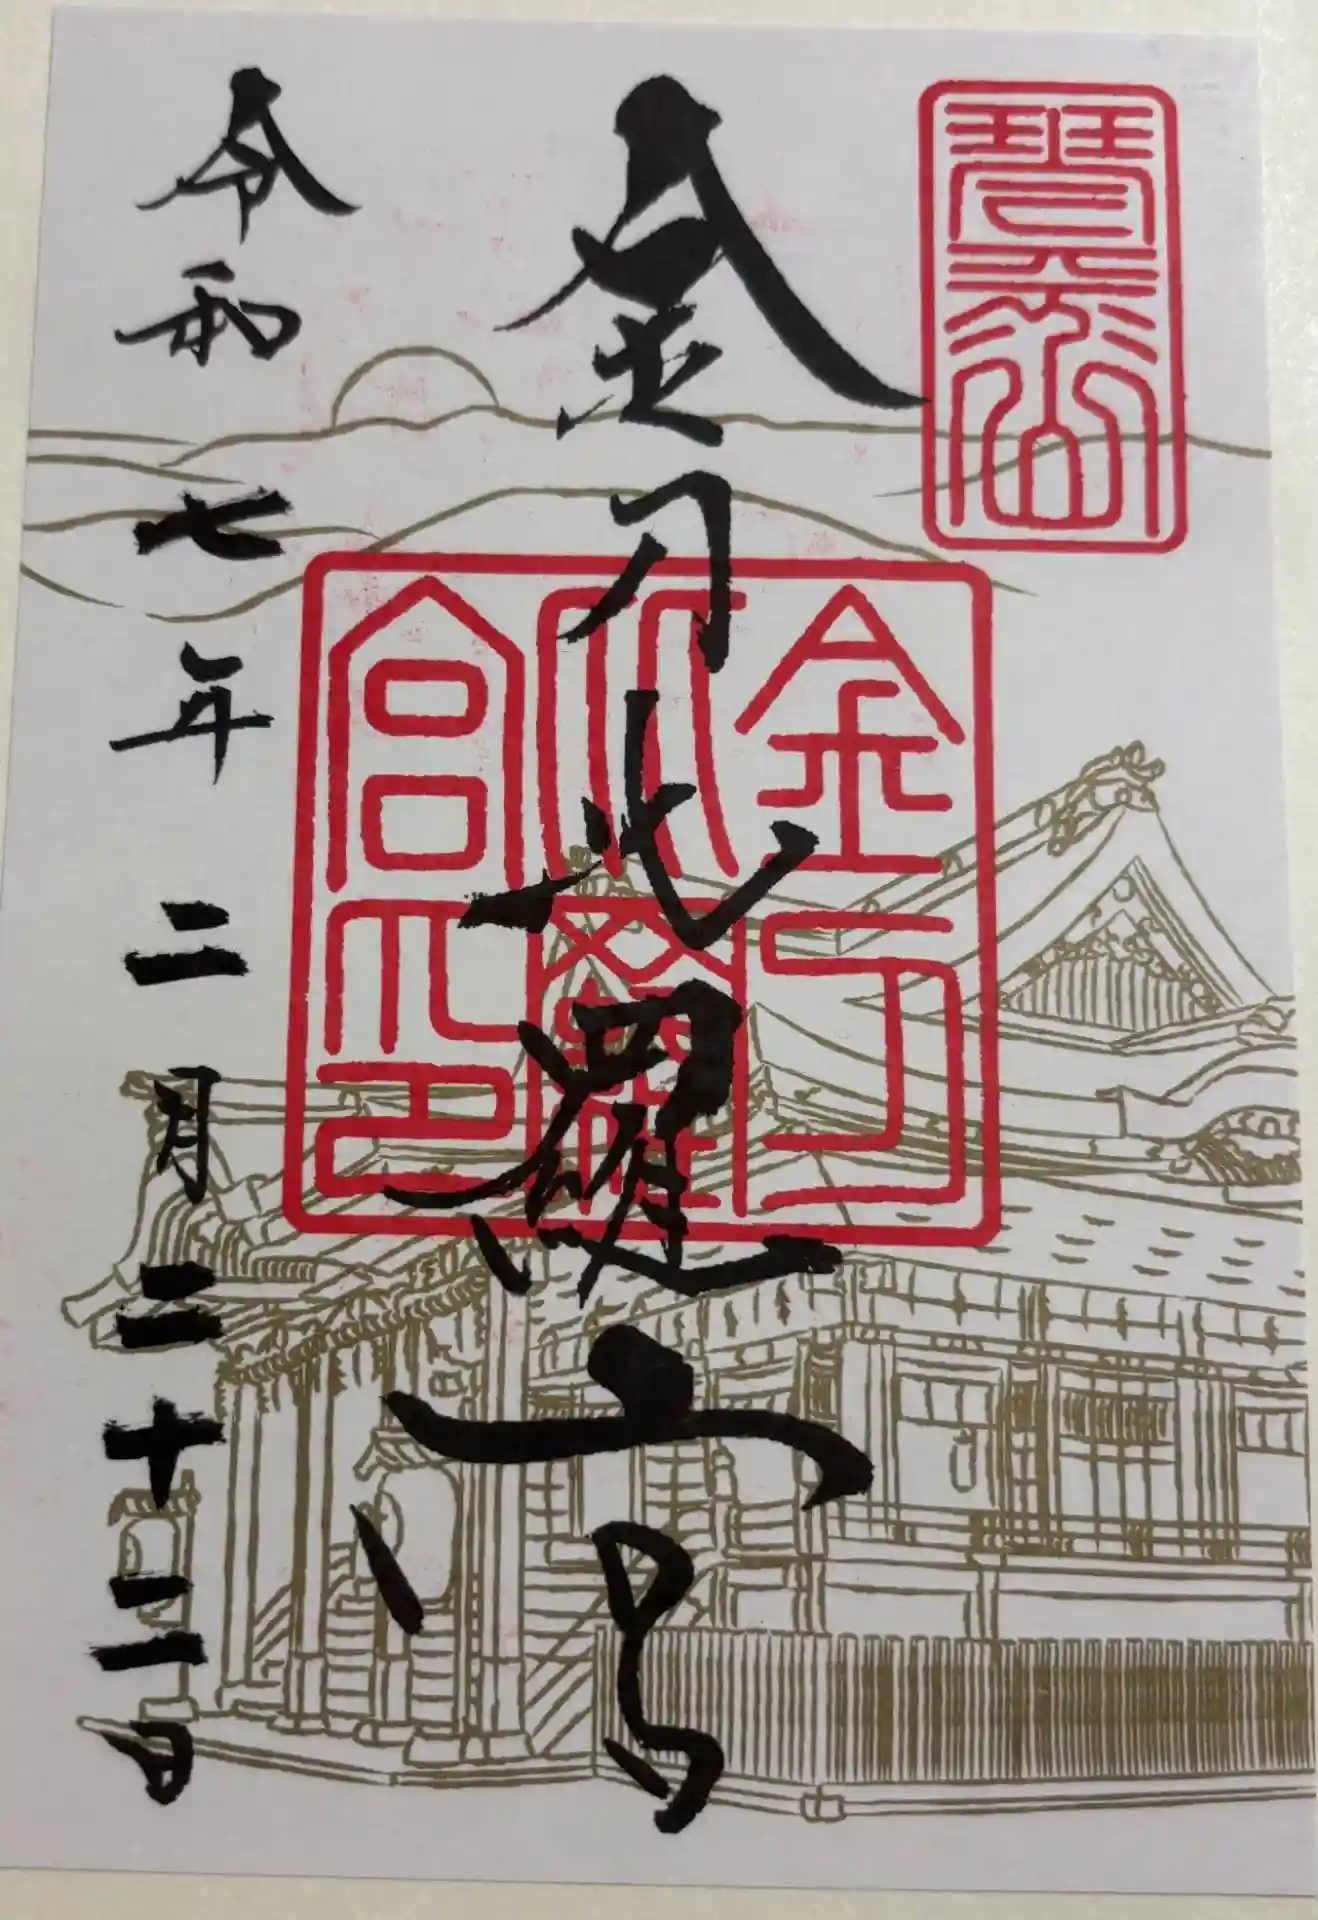 琴平山
金刀比羅宮
金刀
比羅
宮印
令和七年二月二十二日